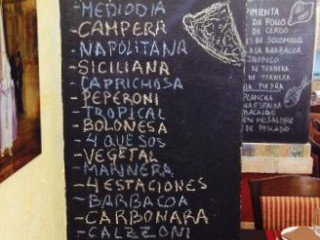 -MEDIODIA
-CAMPERA
-NAPOLITANA
-SICILIANA
-CAPRICHOSA
-PEPERONI
-TROPICAL
-BOLONESA
-4 QUESOS
-VEGETAL
-MARINERA
-4 ESTACIONES
-BARBACOA
-CARBONARA
-CALZZONI
PIMIENTA
DE POLLO
DE CERDO
DE SOLOMILLO
A LA BARBACOA
DE TERNERA
DE TERNERA
PIEDRA
PLANCHA
DE PESCADO